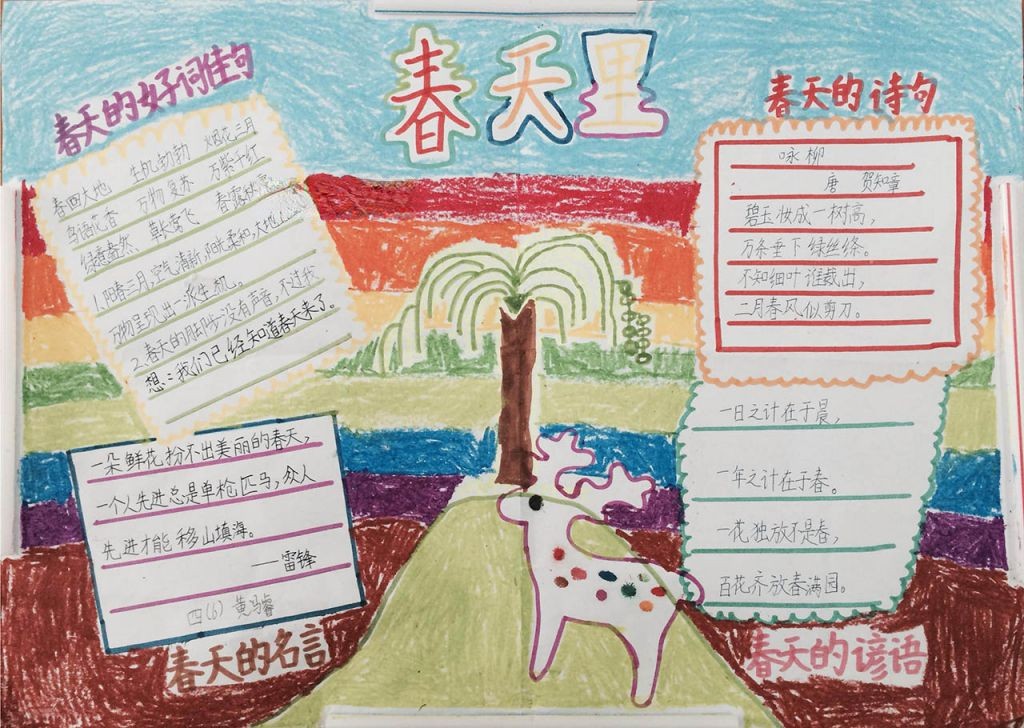 春天里
春天的好词佳句
春回大地 生机勃勃 烟花三月
鸟语花香 万物复苏 万紫千红
绿意盎然 草长莺飞 春露秋霜
1.阳春三月,空气清新,阳光柔和,大地上
万物呈现出一派生机。
2.春天的脚步没有声音,不过我
想:我们已经知道春天来了。
春天的诗句
咏柳
唐 贺知章
碧玉妆成一树高,
万条垂下绿丝绦。
不知细叶谁裁出,
二月春风似剪刀。
一朵鲜花扮不出美丽的春天,
一个人先进总是单枪匹马,众人
先进才能移山填海。
——雷锋
四(6) 黄冯睿
春天的名言
一日之计在于晨,
一年之计在于春。
一花独放不是春,
百花齐放春满园。
春天的谚语